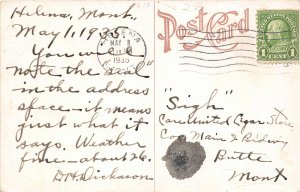 Helena, Mont.
May 1, 1935
You will
note the "seal"
in the address
space—it means
just what it
says. Weather
fine—about 26.
D.H. Dickason
Post Card
HELENA
MAY 1
1935
1 CENT 1
"Sigh"
Care United Cigar Store
Cor. Main & Bdway
Butte
Mont